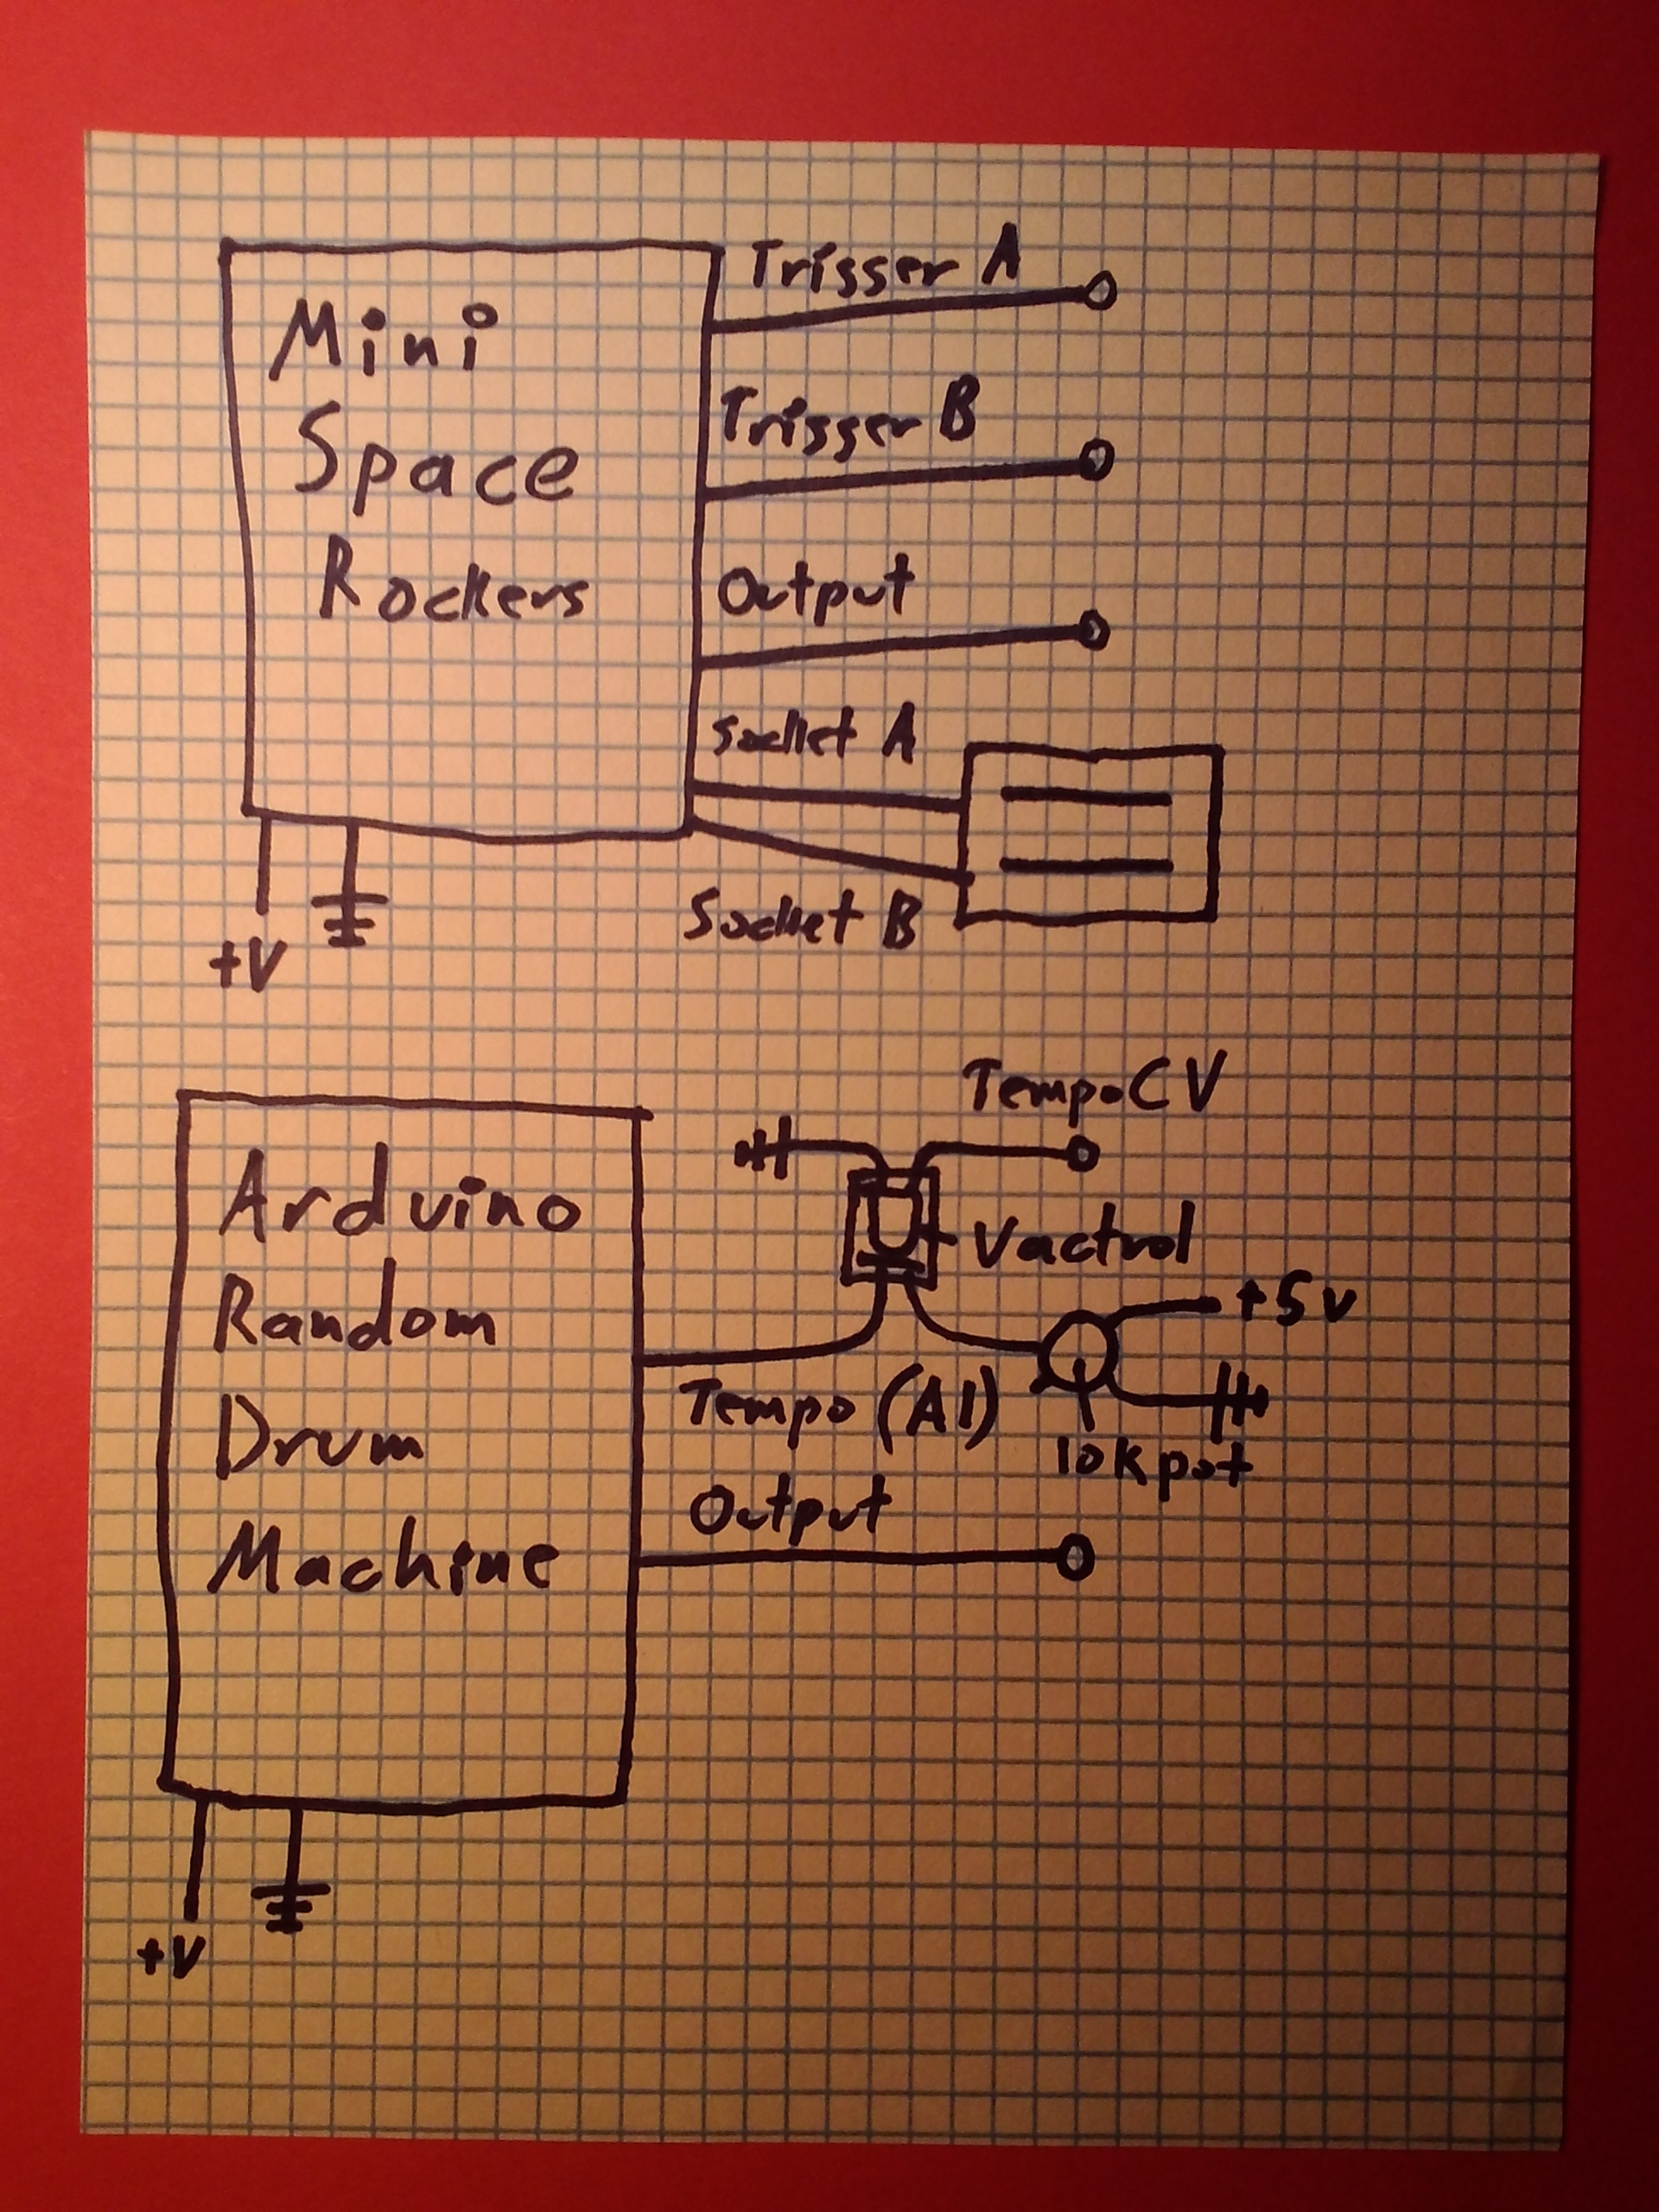 Trigger A
Mini
Space
Rockers
Trigger B
Output
Socket A
Socket B
+V
Tempo CV
Arduino
Random
Drum
Machine
Vactrol
+5v
Tempo (A1)
10k pot
Output
+V